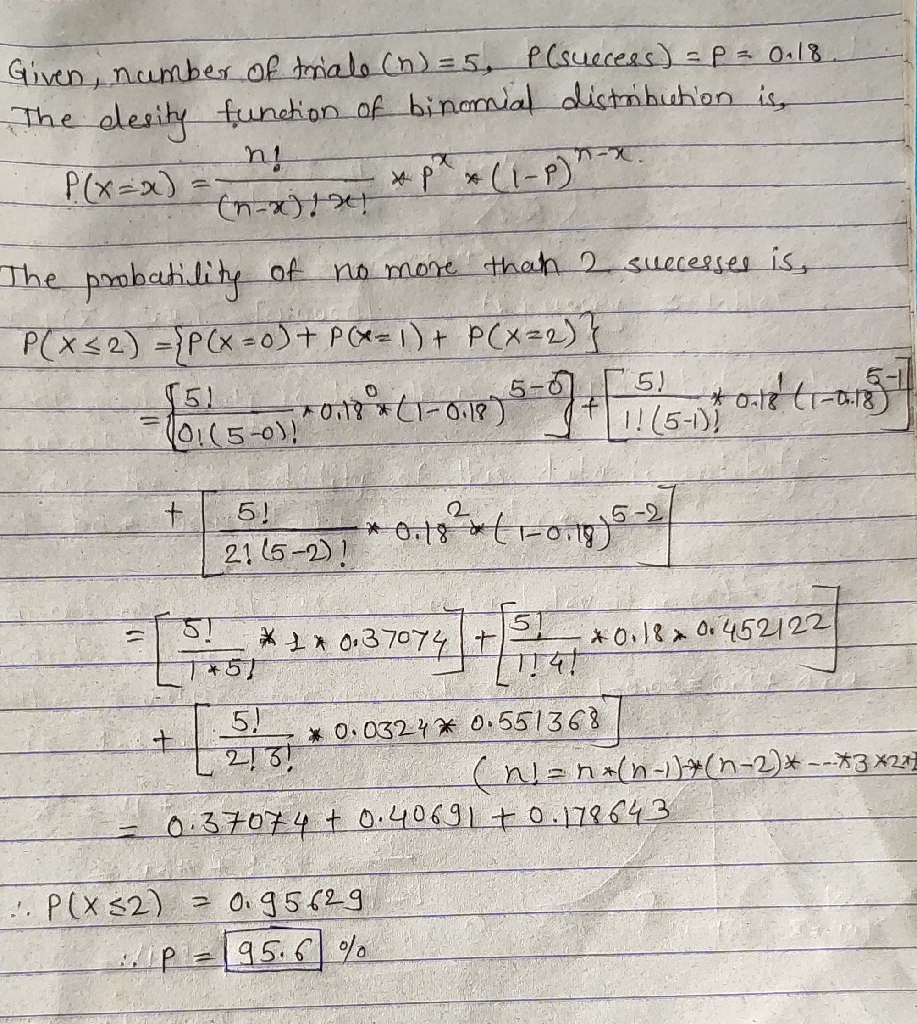 Given, number of trials (n) = 5, P(success) = P = 0.18.
The desity function of binomial distribution is,
P(X=x) = n!/((n-x)! x!) * p^x * (1-P)^(n-x).
The probability of no more than 2 successes is,
P(X≤2) = {P(X=0) + P(X=1) + P(X=2)}
= [5!/(0!(5-0)!) * 0.18^0 * (1-0.18)^(5-0)] + [5!/(1!(5-1)!) * 0.18^1 (1-0.18)^(5-1)]
+ [5!/(2!(5-2)!) * 0.18^2 * (1-0.18)^(5-2)]
= [5!/(1*5!) * 1 * 0.37074] + [5!/(1!4!) * 0.18 * 0.452122]
+ [5!/(2!3!) * 0.0324 * 0.551368]
(n! = n*(n-1)*(n-2)*---*3*2*1
= 0.37074 + 0.40691 + 0.178643
∴ P(X≤2) = 0.95629
∴ P = 95.6 %